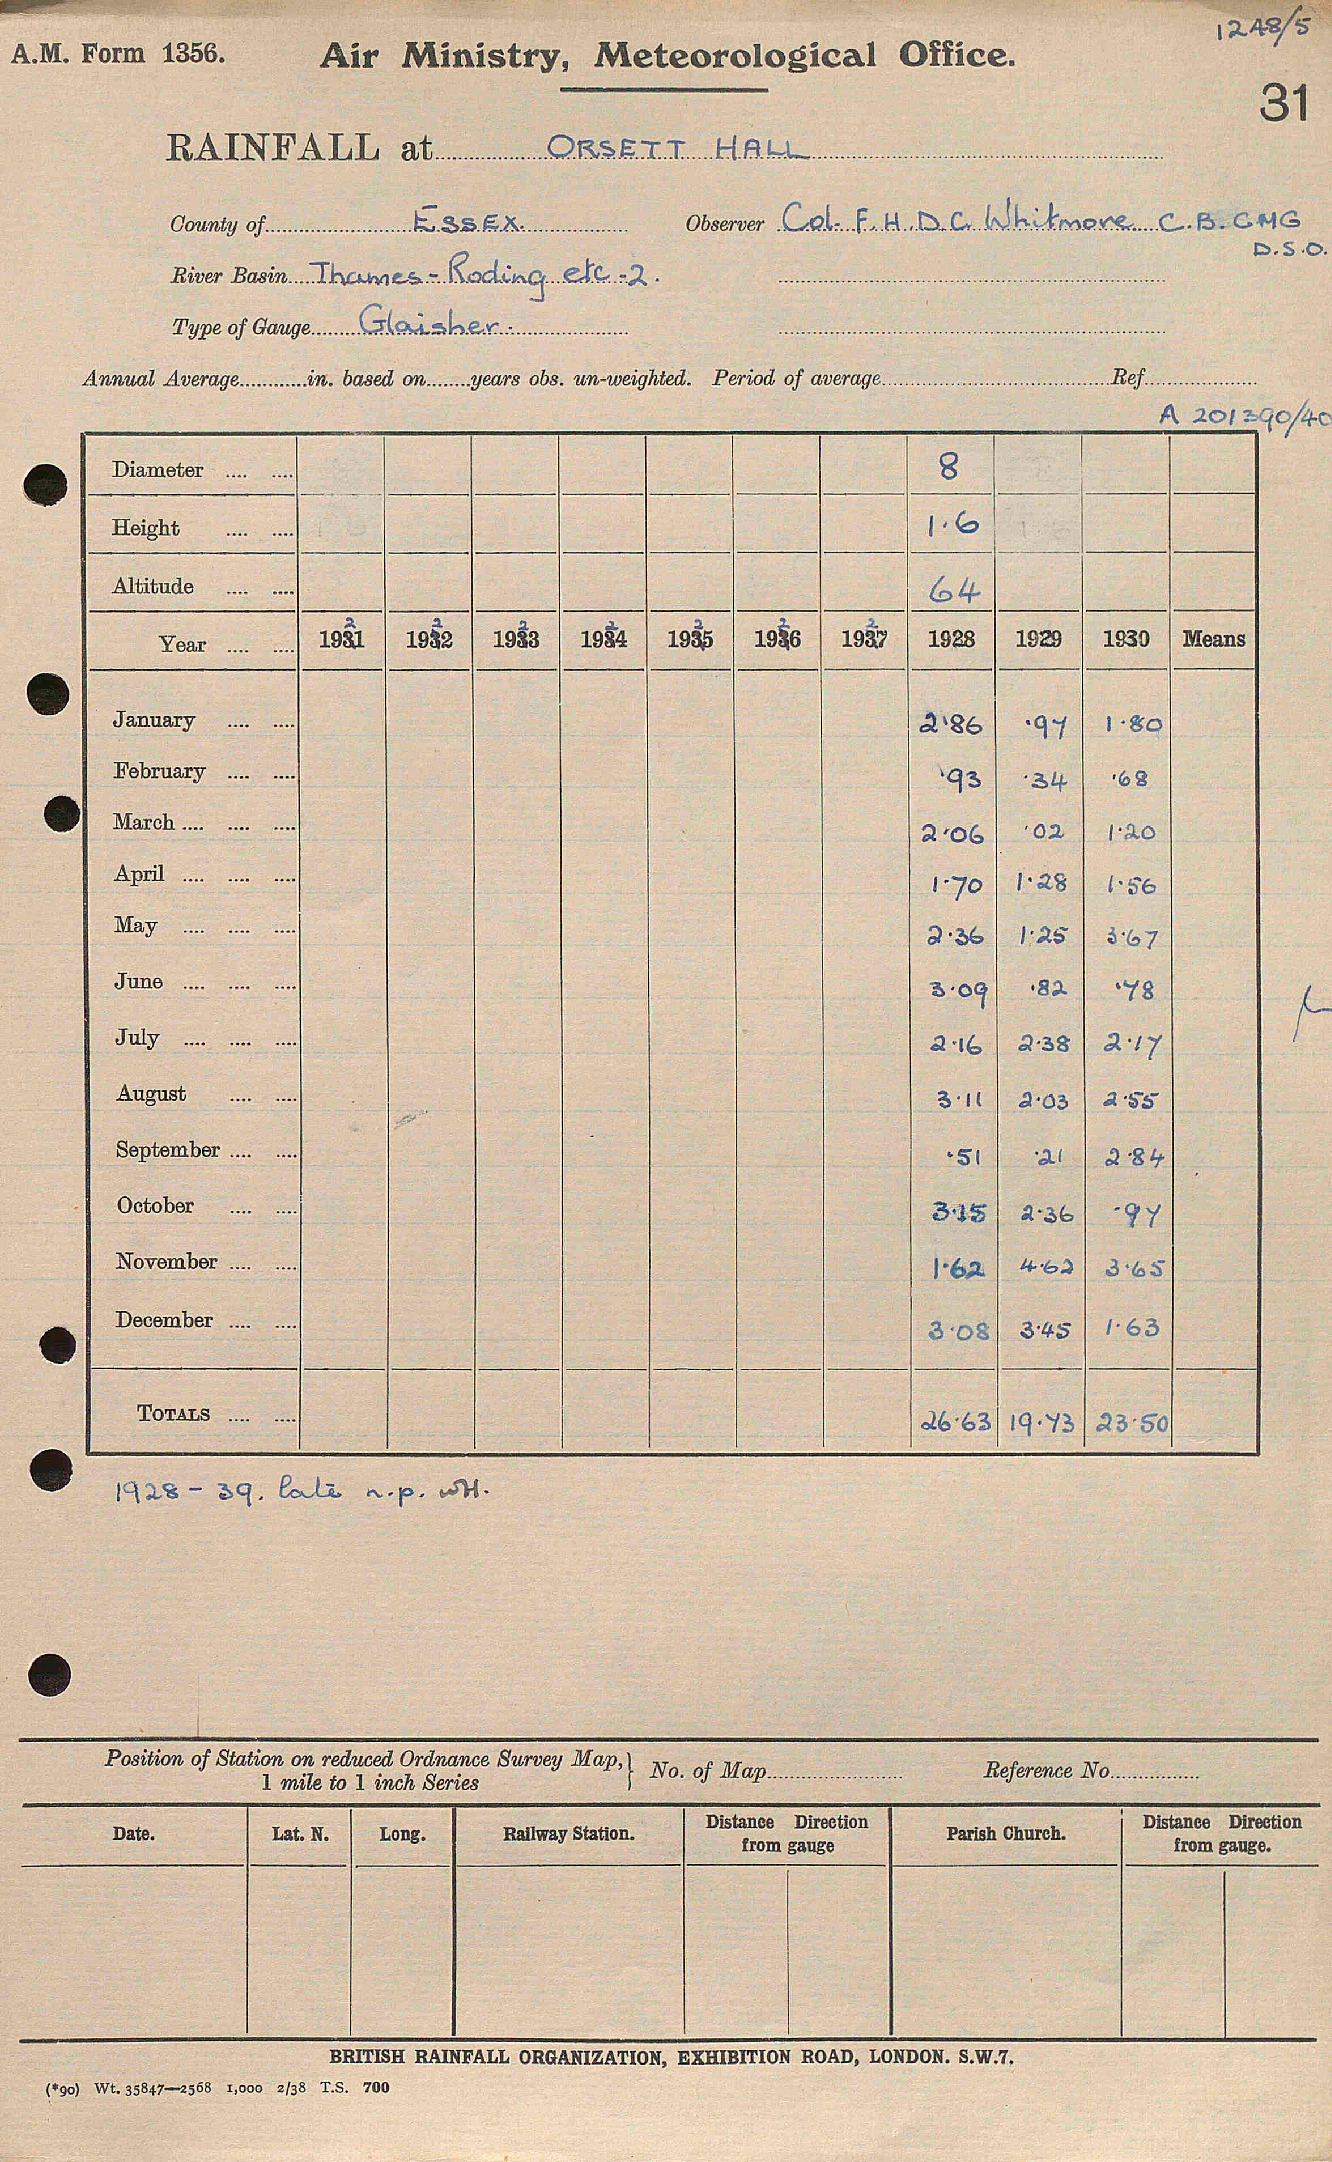 12A8/5
A.M. Form 1356. Air Ministry, Meteorological Office.
31
RAINFALL at ORSETT HALL
County of ESSEX. Observer Col. F.H.D.C. Whitmore C.B. CMG
D.S.O.
River Basin Thames - Roding etc - 2.
Type of Gauge Glaisher.
Annual Average in. based on years obs. un-weighted. Period of average Ref
A 201390/40
Diameter .... .... 8
Height .... .... 1.6
Altitude .... .... 64
Year .... .... 1921 1922 1923 1924 1925 1926 1927 1928 1929 1930 Means
January .... .... 2.86 .97 1.80
February .... .... .93 .34 .68
March .... .... .... 2.06 .02 1.20
April .... .... .... 1.70 1.28 1.56
May .... .... .... 2.36 1.25 3.67
June .... .... .... 3.09 .82 .78
July .... .... .... 2.16 2.38 2.17
August .... .... 3.11 2.03 2.55
September .... .... .51 .21 2.84
October .... .... 3.15 2.36 .97
November .... .... 1.62 4.62 3.65
December .... .... 3.08 3.45 1.63
TOTALS .... .... 26.63 19.73 23.50
1928 - 39. late n.p. WH.
Position of Station on reduced Ordnance Survey Map,} No. of Map Reference No
1 mile to 1 inch Series
Date. Lat. N. Long. Railway Station. Distance Direction from gauge Parish Church. Distance Direction from gauge.
BRITISH RAINFALL ORGANIZATION, EXHIBITION ROAD, LONDON. S.W.7.
(*90) Wt. 35847—2568 1,000 2/38 T.S. 700